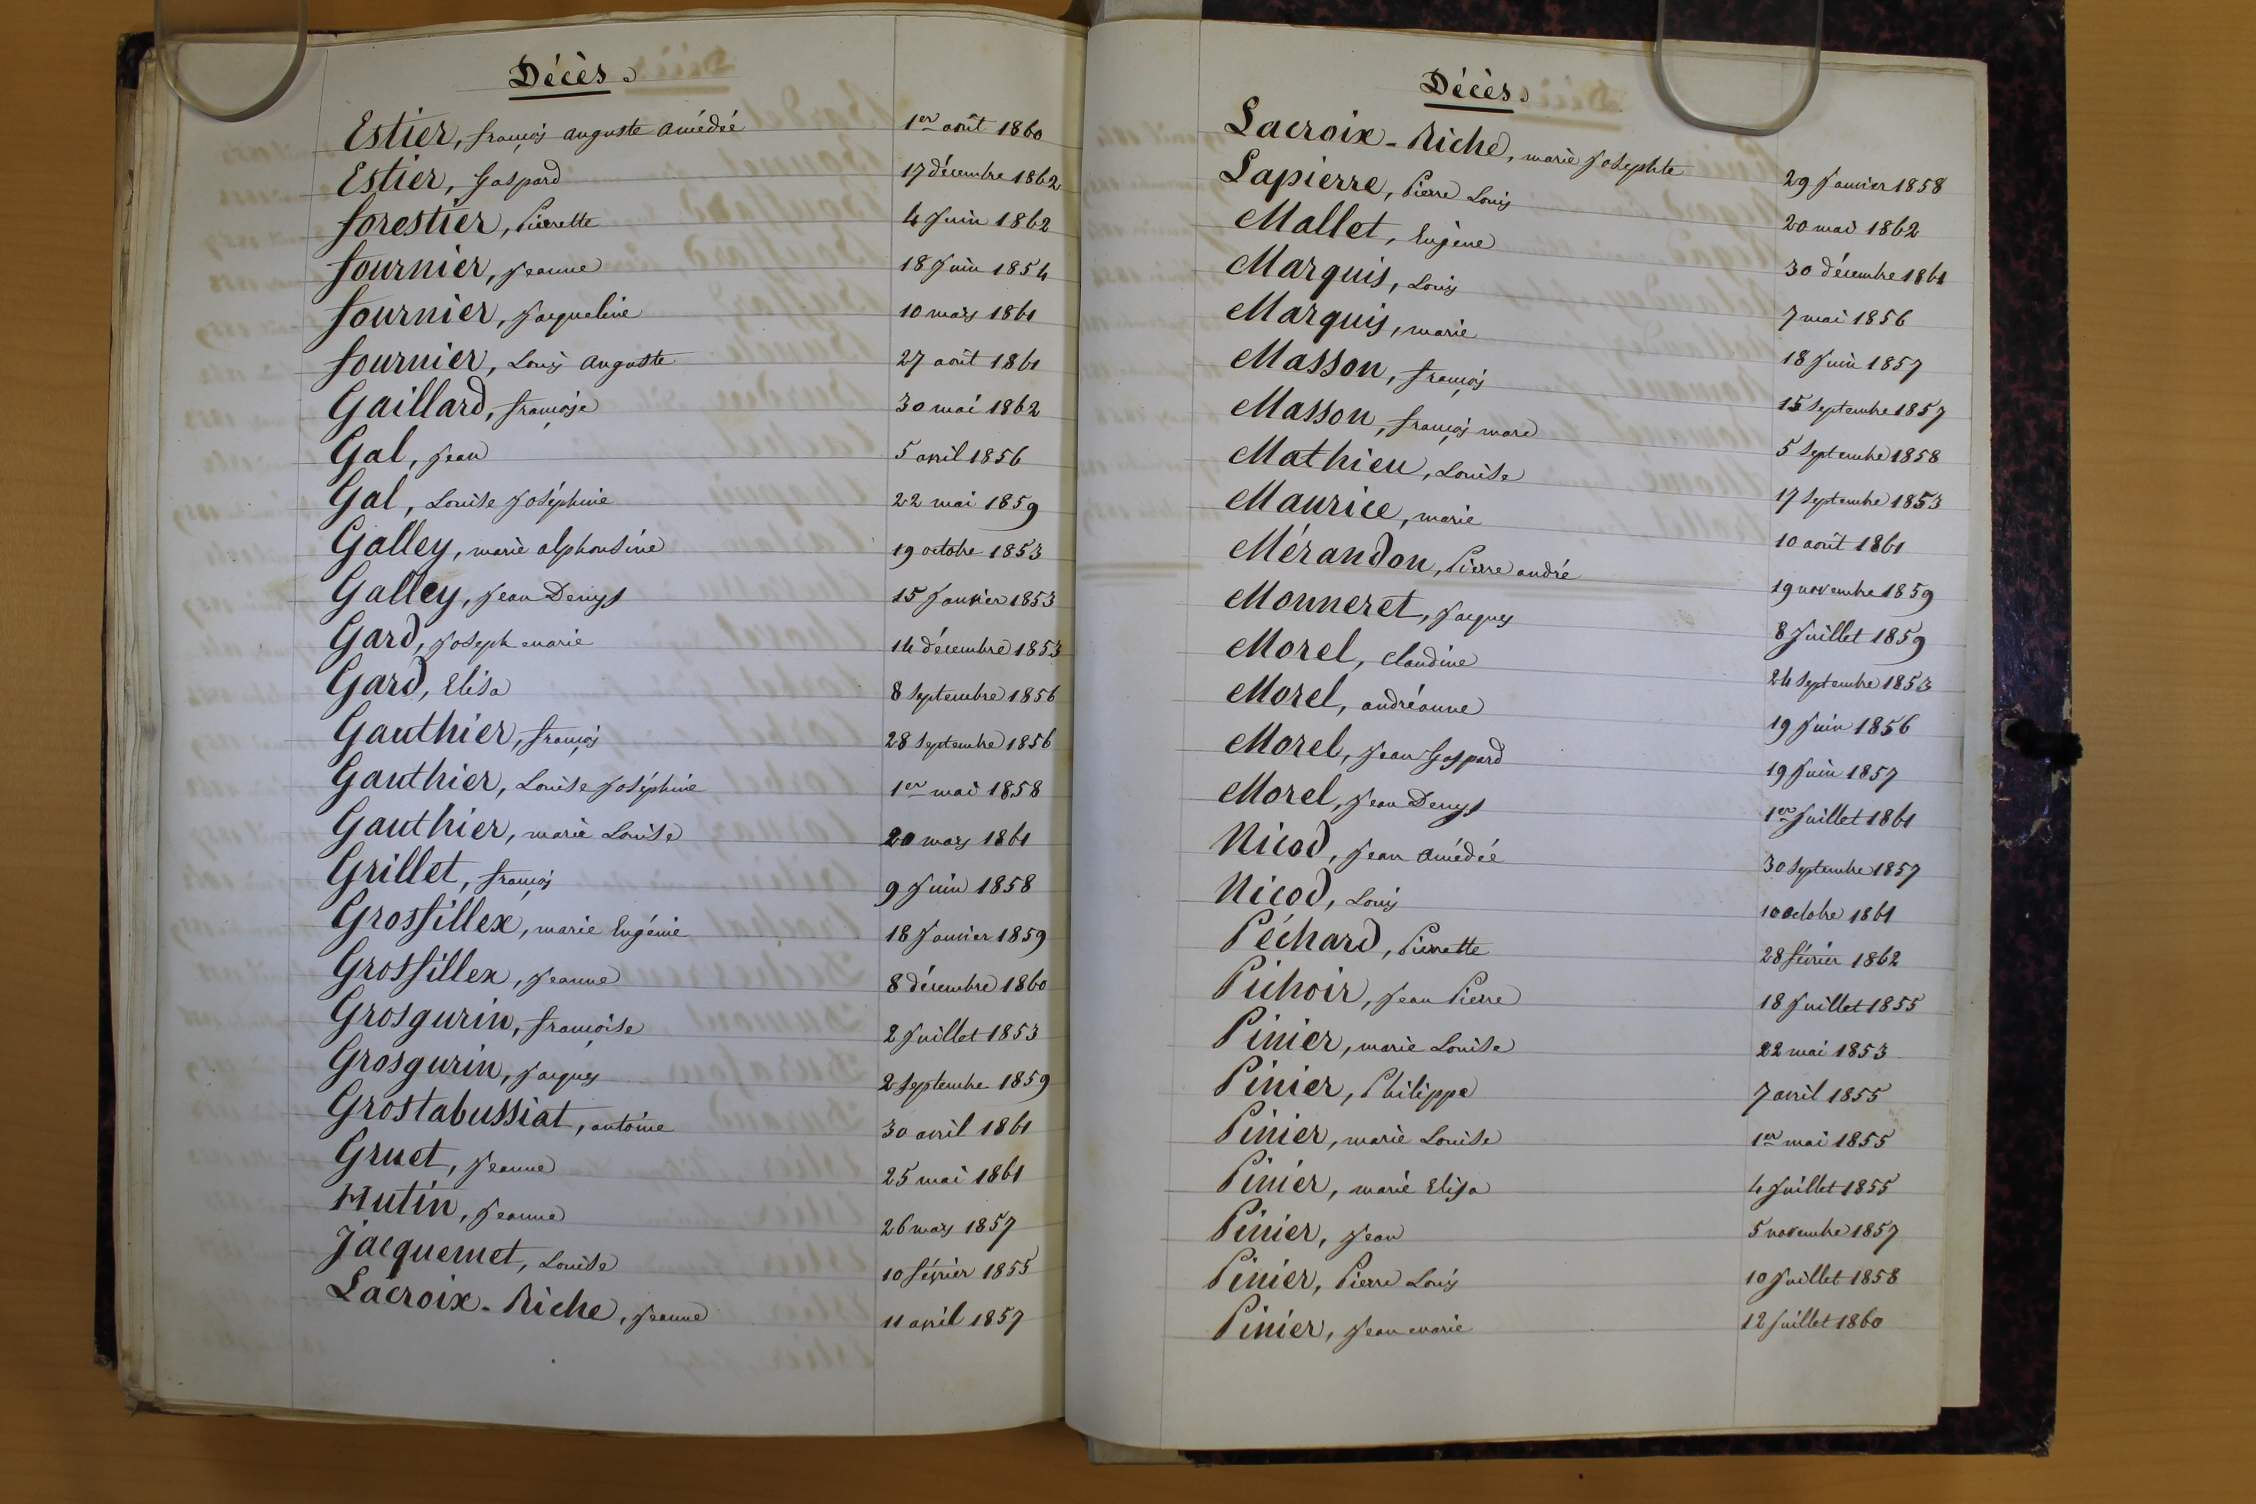 Décès.
Estier, françois auguste amédée 1er août 1860
Estier, Gaspard 17 décembre 1862
forestier, Pierrette 4 Juin 1862
fournier, Jeanne 18 Juin 1854
fournier, Jacqueline 10 mars 1861
fournier, Louis auguste 27 août 1861
Gaillard, françoise 30 mai 1862
Gal, Jean 5 avril 1856
Gal, Louise Joséphine 22 mai 1859
Galley, marie alphonsine 19 octobre 1853
Galley, Jean Denys 15 Janvier 1853
Gard, Joseph marie 14 décembre 1853
Gard, Elisa 8 septembre 1856
Gauthier, françois 28 septembre 1856
Gauthier, Louise Joséphine 1er mai 1858
Gauthier, marie Louise 20 mars 1861
Grillet, françois 9 Juin 1858
Grosfillex, marie Eugénie 18 Janvier 1859
Grosfillex, Jeanne 8 décembre 1860
Grosgurin, françoise 2 Juillet 1853
Grosgurin, Jacques 2 septembre 1859
Grostabussiat, antoine 30 avril 1861
Gruet, Jeanne 25 mai 1861
Hutin, Jeanne 26 mars 1857
Jacquemet, Louise 10 février 1855
Lacroix-Riche, Jeanne 11 avril 1857
Décès.
Lacroix-Riche, marie Josephte 29 Janvier 1858
Lapierre, Pierre Louis 20 mai 1862
Mallet, Eugène 30 décembre 1861
Marquis, Louis 7 mai 1856
Marquis, marie 18 Juin 1857
Masson, françois 15 septembre 1857
Masson, françois marc 5 septembre 1858
Mathieu, Louise 17 septembre 1853
Maurice, marie 10 août 1861
Mérandon, Pierre andré 19 novembre 1859
Monneret, Jacques 8 Juillet 1859
Morel, claudine 24 septembre 1853
Morel, andréanne 19 Juin 1856
Morel, Jean Gaspard 19 Juin 1857
Morel, Jean Denys 1er Juillet 1861
Nicod, Jean amédée 30 septembre 1857
Nicod, Louis 10 octobre 1861
Péchard, Pierrette 28 février 1862
Pichoir, Jean Pierre 18 Juillet 1855
Pinier, marie Louise 22 mai 1853
Pinier, Philippe 7 avril 1855
Pinier, marie Louise 1er mai 1855
Pinier, marie Elisa 4 Juillet 1855
Pinier, Jean 5 novembre 1857
Pinier, Pierre Louis 10 Juillet 1858
Pinier, Jean marie 12 Juillet 1860